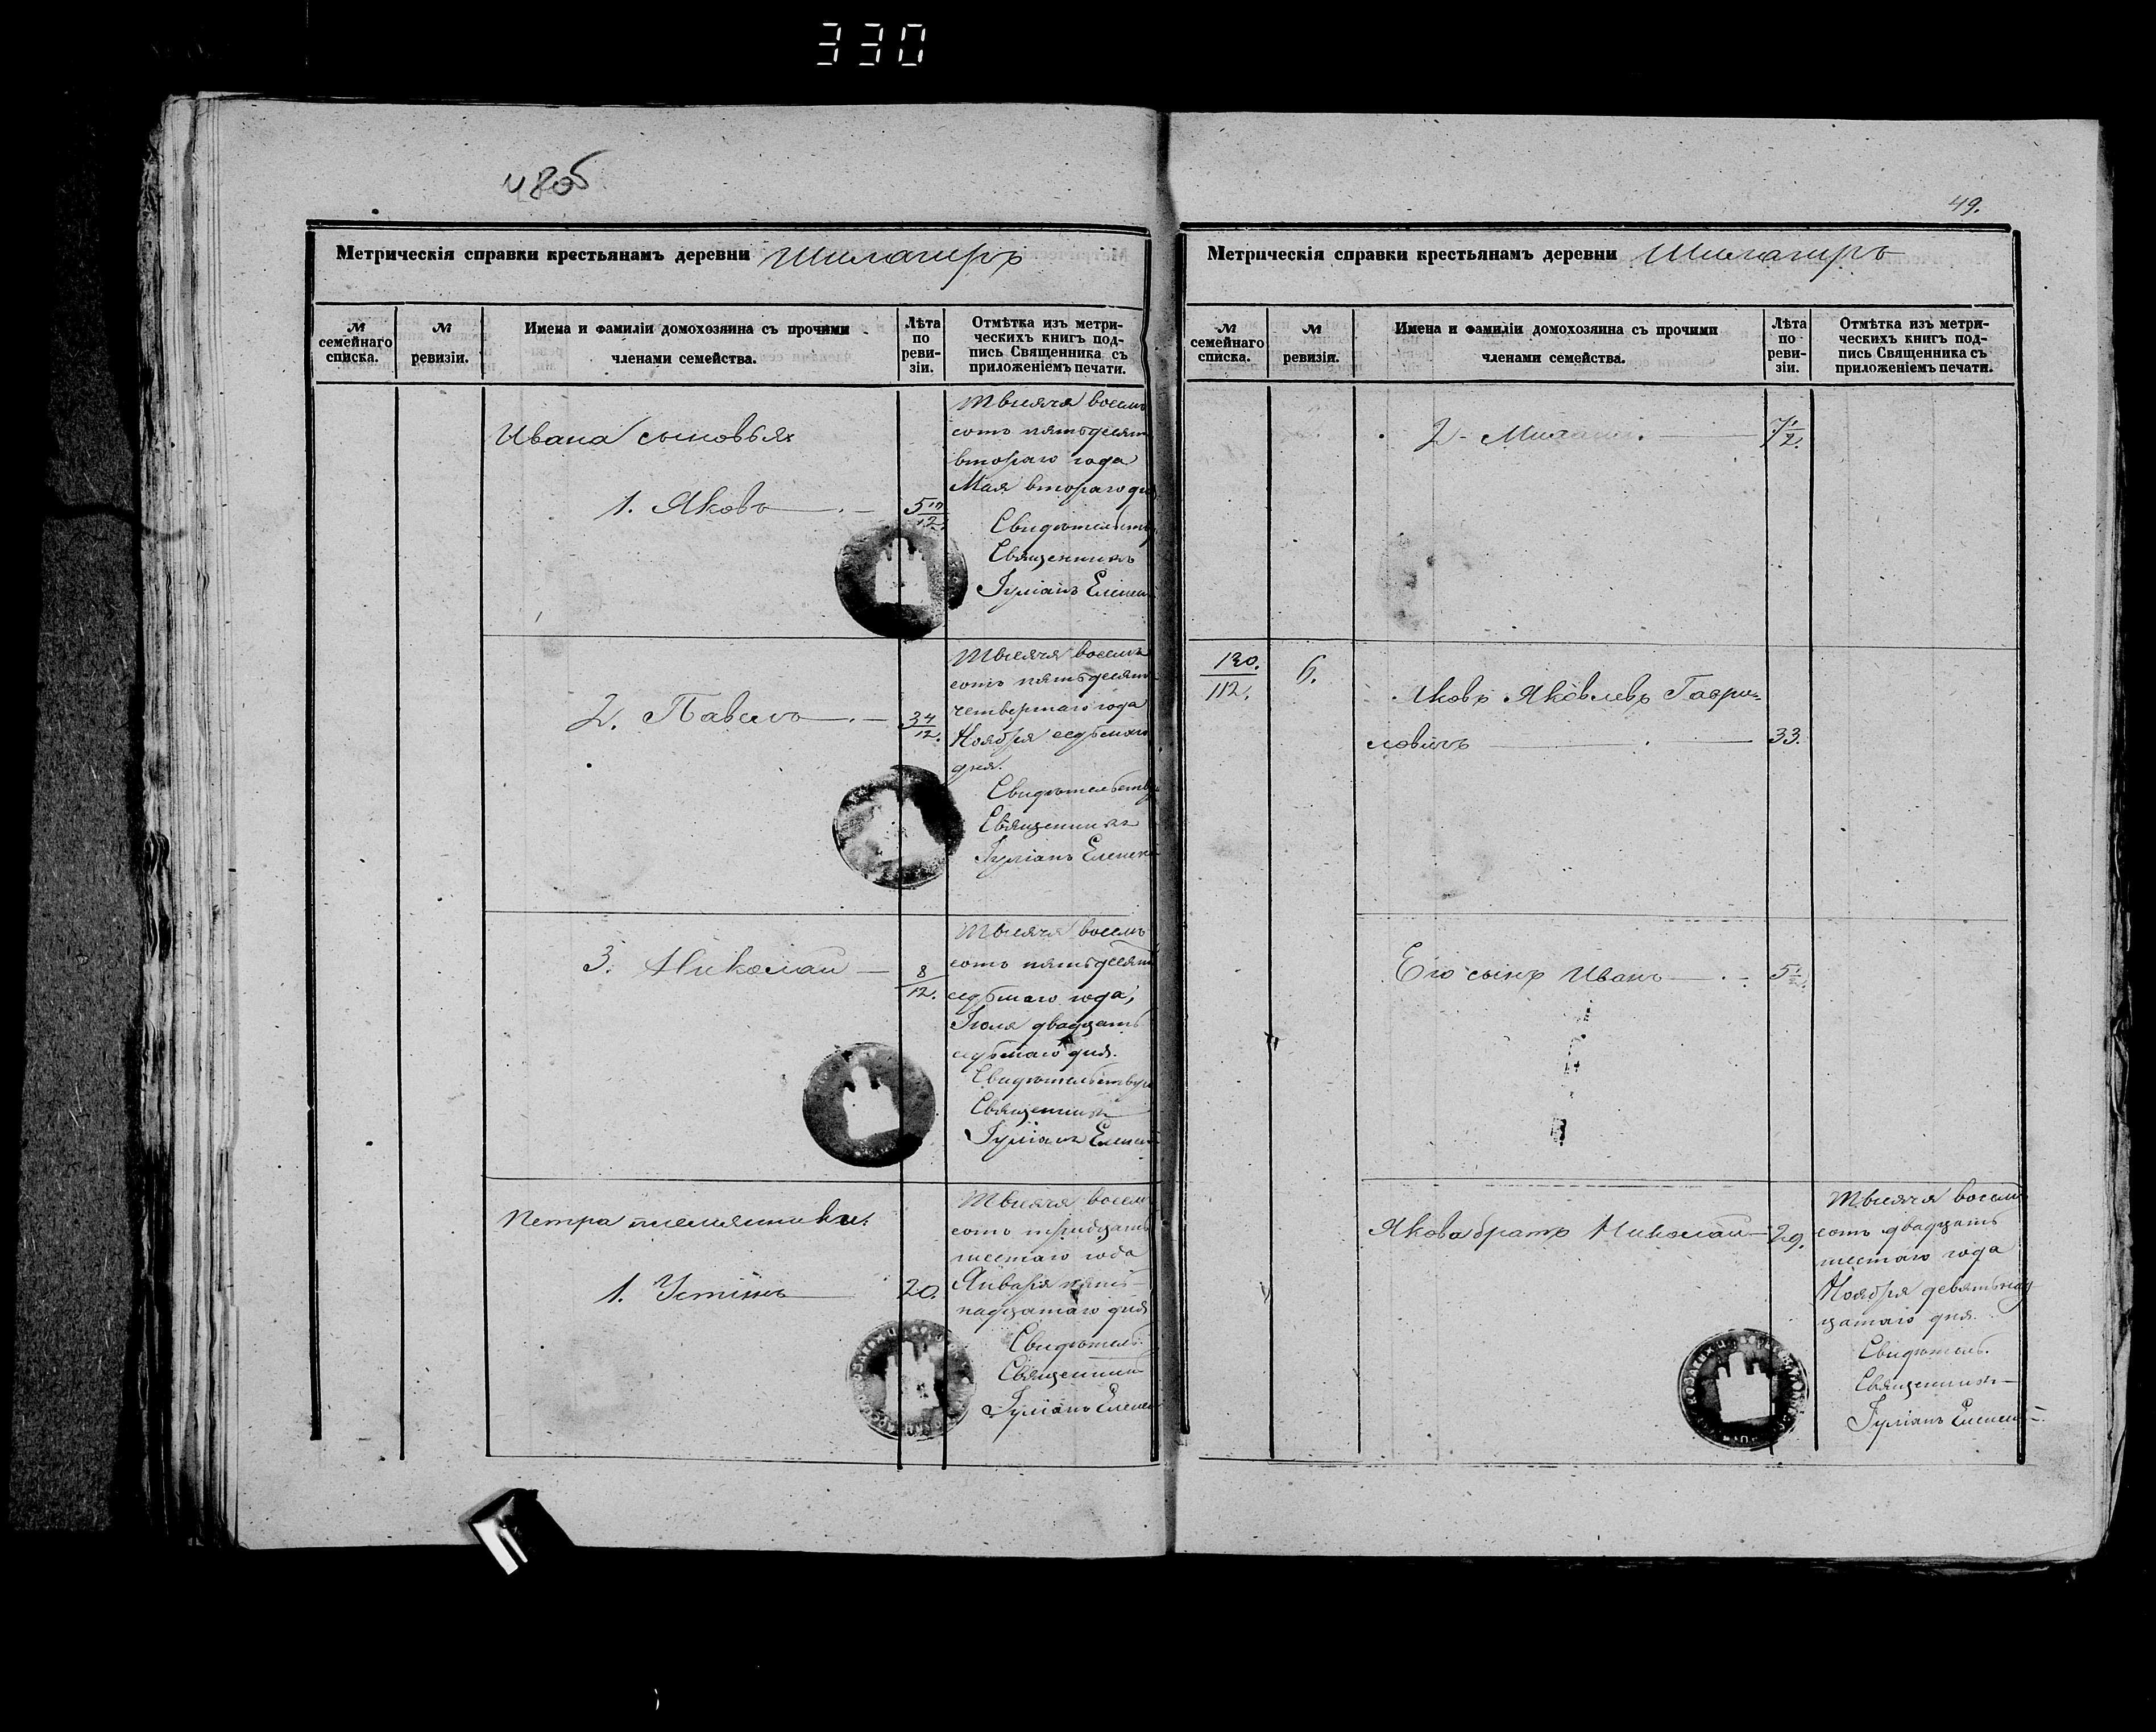 330
48об
Метрическія справки крестьянамъ деревни
№ семейнаго списка.
№ ревизіи.
Имена и Фамиліи домохозяина съ прочими членами семейства.
Лѣта по реви-зіи.
Отмѣтка изъ метри-
ческихъ книгъ под-
пись Священника съ
приложеніемъ печати.
Ивана сыновья
Тысяча восемь
сотъ пятьдесят
втораго года
Мая втораго дня
1. Яковъ 5 10/12
Свидѣтельству
Священникъ
Іуліанъ
Тысяча восемь
сотъ пятьдесят
четвертаго года
2. Павелъ 3 4/12.
Ноября седьмаго
дня.
Свидѣтельству
Священникъ
Іуліанъ
Тысяча восемь
3. Николай 8/12.
сотъ пятьдесят
седьмаго года,
Іюля двадцать
седьмаго дня.
Свидѣтельству
Священникъ
Іуліанъ
Петра племянники:
Тысяча восемь
сотъ тридцать
шестаго года
1. Устинъ 20.
Января пят-
надцатаго дня
Свидѣтель.
Священникъ
Іуліанъ
49.
Метрическія справки крестьянамъ деревни
№ семейнаго списка.
№ ревизіи.
Имена и Фамиліи домохозяина съ прочими членами семейства.
Лѣта по реви-зіи.
Отмѣтка изъ метри-
ческихъ книгъ под-
пись Священника съ
приложеніемъ печати.
2.
130./112. 6.
Яковъ Яковлевъ Гаври-
ловичъ 33.
Его сынъ Иванъ 5 1/2.
Якова братъ Николай 29.
Тысяча восемь
сотъ двадцать
шестаго года
Ноября девятьнад
цатаго дня.
Свидѣтель.
Священникъ
Іуліанъ